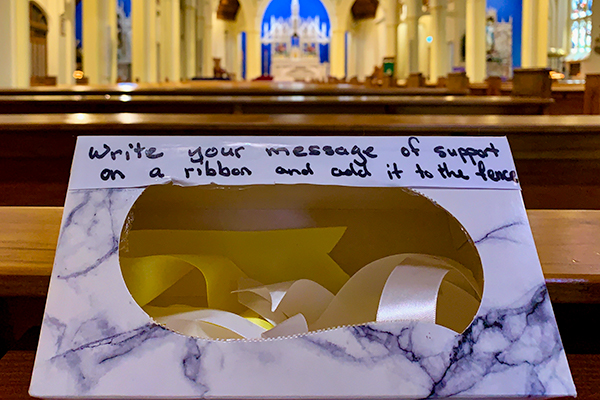 Write your message of support
on a ribbon and add it to the fence